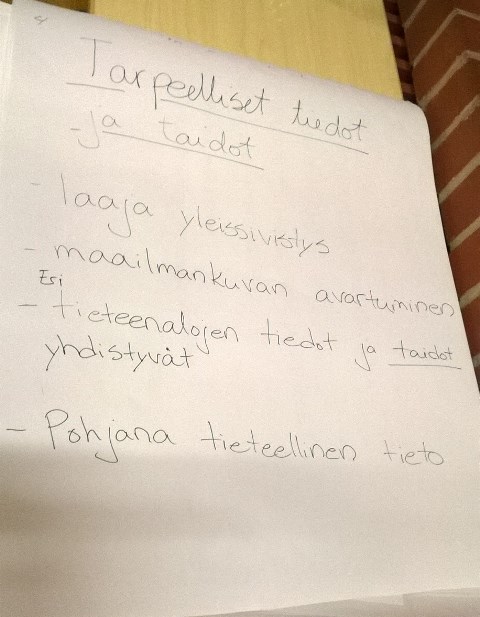 4
Tarpeelliset tiedot
- ja taidot
- laaja yleissivistys
- maailmankuvan avartuminen
Eri
- tieteenalojen tiedot ja taidot
yhdistyvät
- Pohjana tieteellinen tieto